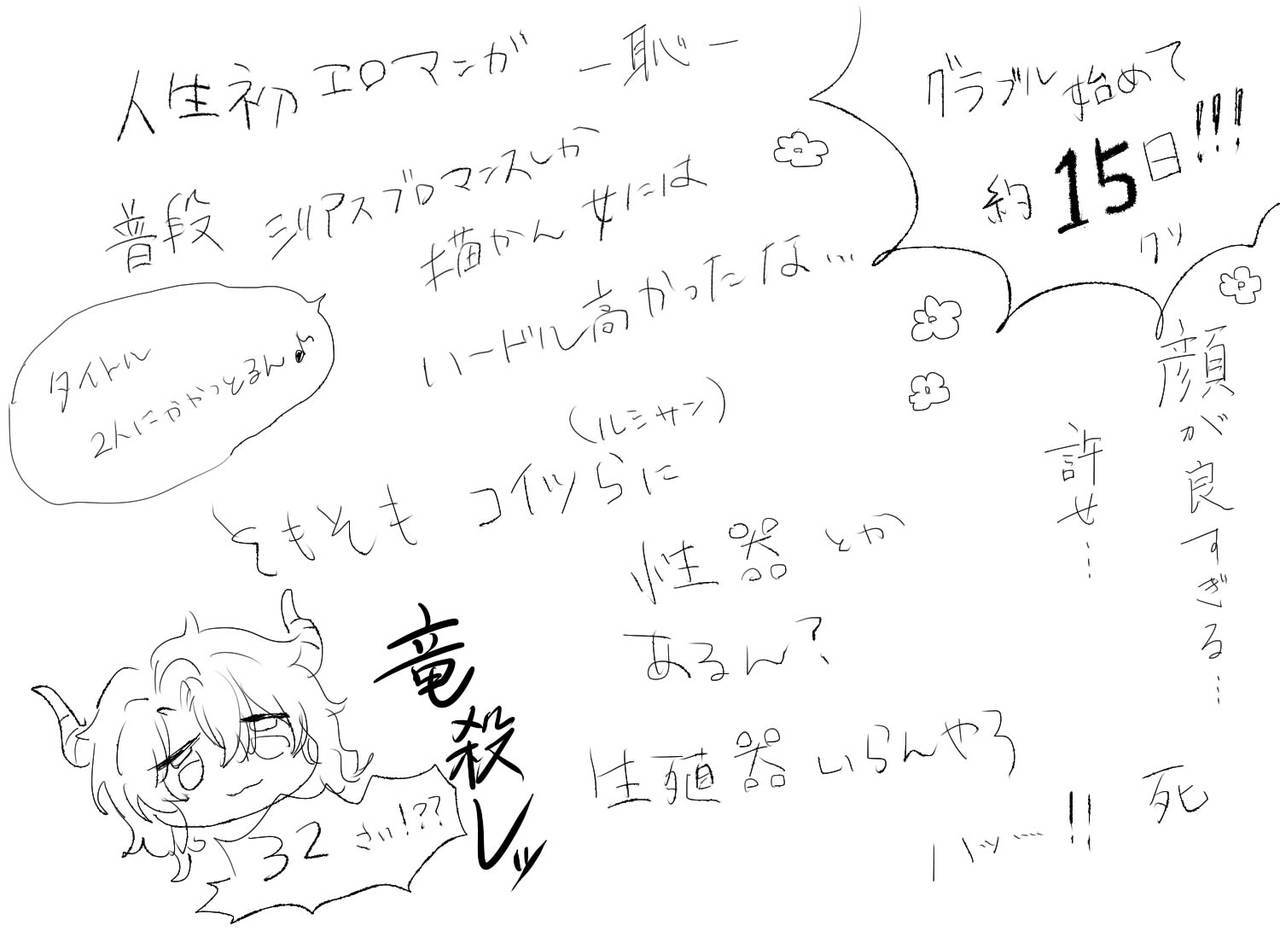 人生初エロマンガ ー恥ー
普段 シリアスブロマンスしか
描かん女には
ハードル高かったな…
グラブル始めて
約15日!!!
クソ
顔が良すぎる…
許せ…
死
タイトル
2人にかかっとるん♪
そもそも コイツらに
(ルシサン)
性器とか
あるん?
生殖器いらんやろ
ハッ……!!
竜殺しッ
32さい!??